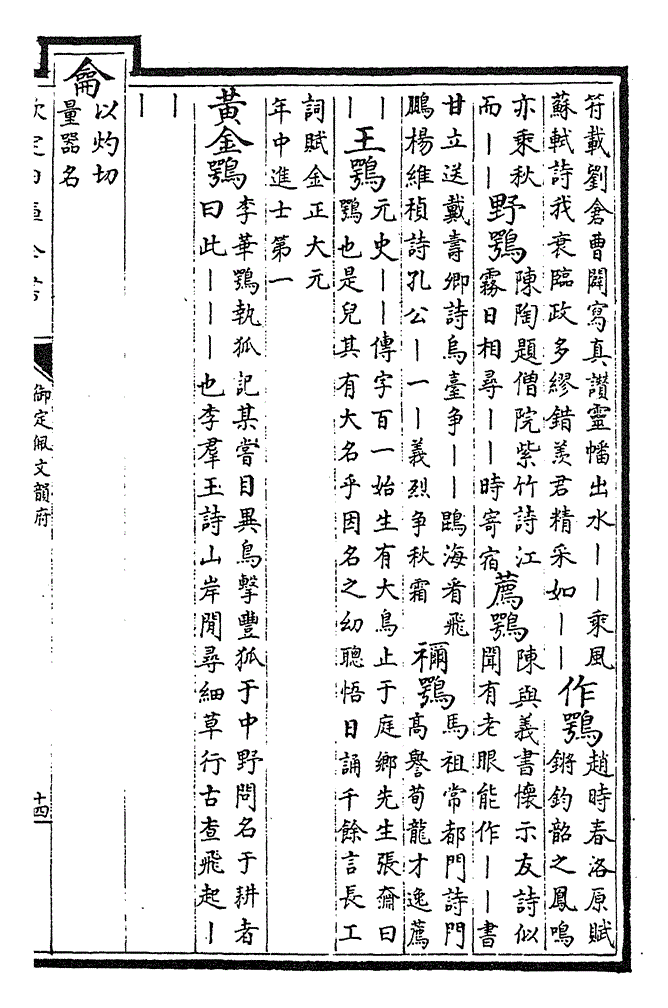 符載劉倉曹闗寫真讃靈幡出水丨丨乘風
蘇軾詩我衰臨政多繆錯羨君精采如丨丨
作鶚
趙時春洛原賦
鏘鈞韶之鳳鳴
亦乘秋
而丨丨
野鶚
陳陶題僧院紫竹詩江
霧日相尋丨丨時寄宿
薦鶚
陳與義書懷示友詩似
聞有老眼能作丨丨書
甘立送戴壽卿詩烏臺争丨丨鵾海看飛
鵬楊維楨詩孔公丨一丨義烈争秋霜
禰鶚
馬祖常都門詩門
髙譽荀龍才逸薦
丨
丨
王鶚
元史丨丨傳字百一始生有大鳥止于庭鄉先生張齋曰
鶚也是兒其有大名乎因名之幼聰悟日誦千餘言長工
詞賦金正大元
年中進士第一
黃金鶚
李華鶚執狐記某嘗目異鳥擊豐狐于中野問名于耕者
曰此丨丨丨也李羣玉詩山岸閒尋細草行古查飛起丨
丨
丨
龠
以灼切
量器名
欽定四庫全書
御定佩文韻府
十四